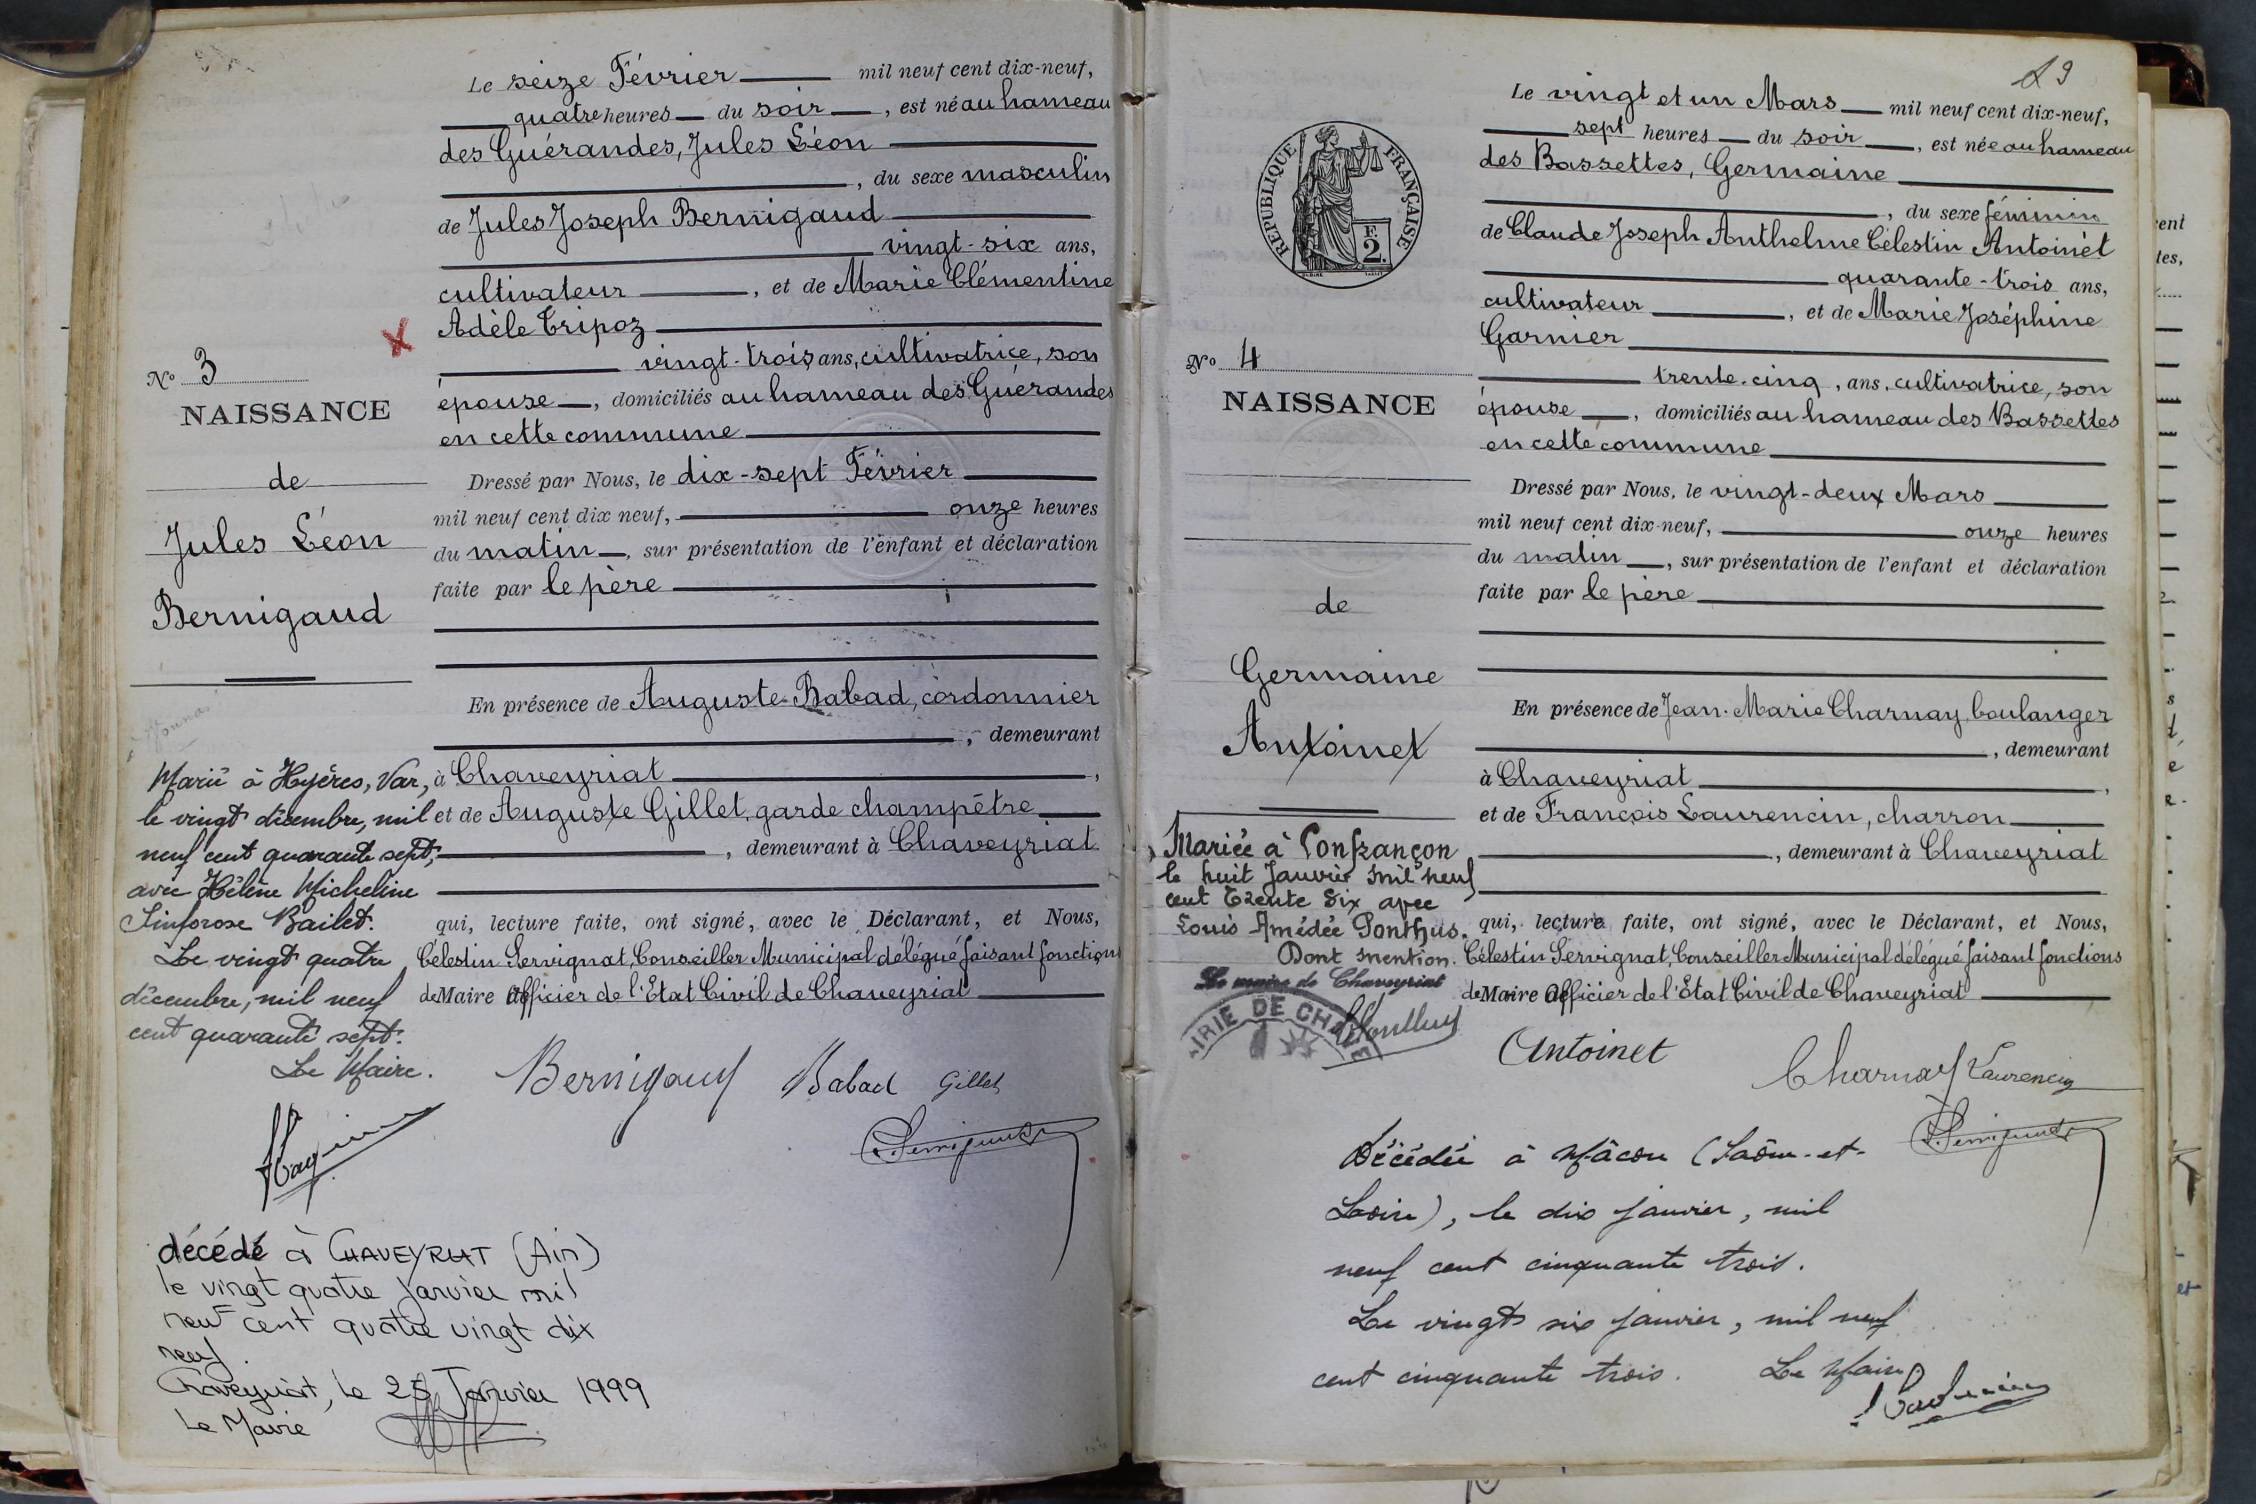 Le seize Février mil neuf cent dix-neuf,
quatre heures du soir, est né au hameau
des Guérandes, Jules Léon
, du sexe masculin
de Jules Joseph Bernigaud
vingt-six ans,
cultivateur, et de Marie Clémentine
Adèle Tripoz
vingt-trois ans, cultivatrice, son
épouse, domiciliés au hameau des Guérandes
en cette commune
Dressé par Nous, le dix-sept Février
mil neuf cent dix neuf, onze heures
du matin, sur présentation de l'enfant et déclaration
faite par le père
En présence de Auguste Babad, cordonnier
, demeurant
à Chaveyriat,
et de Auguste Gillet, garde champêtre
, demeurant à Chaveyriat
qui, lecture faite, ont signé, avec le Déclarant, et Nous,
Célestin Servignat, Conseiller Municipal délégué faisant fonctions
de Maire Officier de l'Etat Civil de Chaveyriat
Bernigaud Babad Gillet
C. Servignat
No 3
NAISSANCE
de
Jules Léon
Bernigaud
Marié à Hyères, Var,
le vingt décembre, mil
neuf cent quarante sept,
avec Hélène Micheline
Sinforose Bailet.
Le vingt quatre
décembre, mil neuf
cent quarante sept.
Le Maire.
décédé à CHAVEYRIAT (Ain)
le vingt quatre janvier mil
neuf cent quatre vingt dix
neuf.
Chaveyriat, le 25 Janvier 1999
Le Maire
Le vingt et un Mars mil neuf cent dix-neuf,
sept heures du soir, est née au hameau
des Bassettes, Germaine
, du sexe féminin
de Claude Joseph Anthelme Célestin Antoinet
quarante-trois ans,
cultivateur, et de Marie Joséphine
Garnier
trente-cinq, ans, cultivatrice, son
épouse, domiciliés au hameau des Bassettes
en cette commune
Dressé par Nous, le vingt-deux Mars
mil neuf cent dix-neuf, onze heures
du matin, sur présentation de l'enfant et déclaration
faite par le père
En présence de Jean-Marie Charnay, boulanger
, demeurant
à Chaveyriat,
et de François Laurencin, charron
, demeurant à Chaveyriat
qui, lecture faite, ont signé, avec le Déclarant, et Nous,
Célestin Servignat, Conseiller Municipal délégué faisant fonctions
de Maire Officier de l'Etat Civil de Chaveyriat
Antoinet Charnay Laurencin
C. Servignat
RÉPUBLIQUE FRANÇAISE
F.
2.
No 4
NAISSANCE
de
Germaine
Antoinet
Mariée à Confrançon
le huit Janvier mil neuf
cent trente six avec
Louis Amédée Ponthus.
Dont mention.
Le maire de Chaveyriat
MAIRIE DE CHAVE
Décédée à Mâcon (Saône-et-
Loire), le dix janvier, mil
neuf cent cinquante trois.
Le vingt six janvier, mil neuf
cent cinquante trois. Le Maire